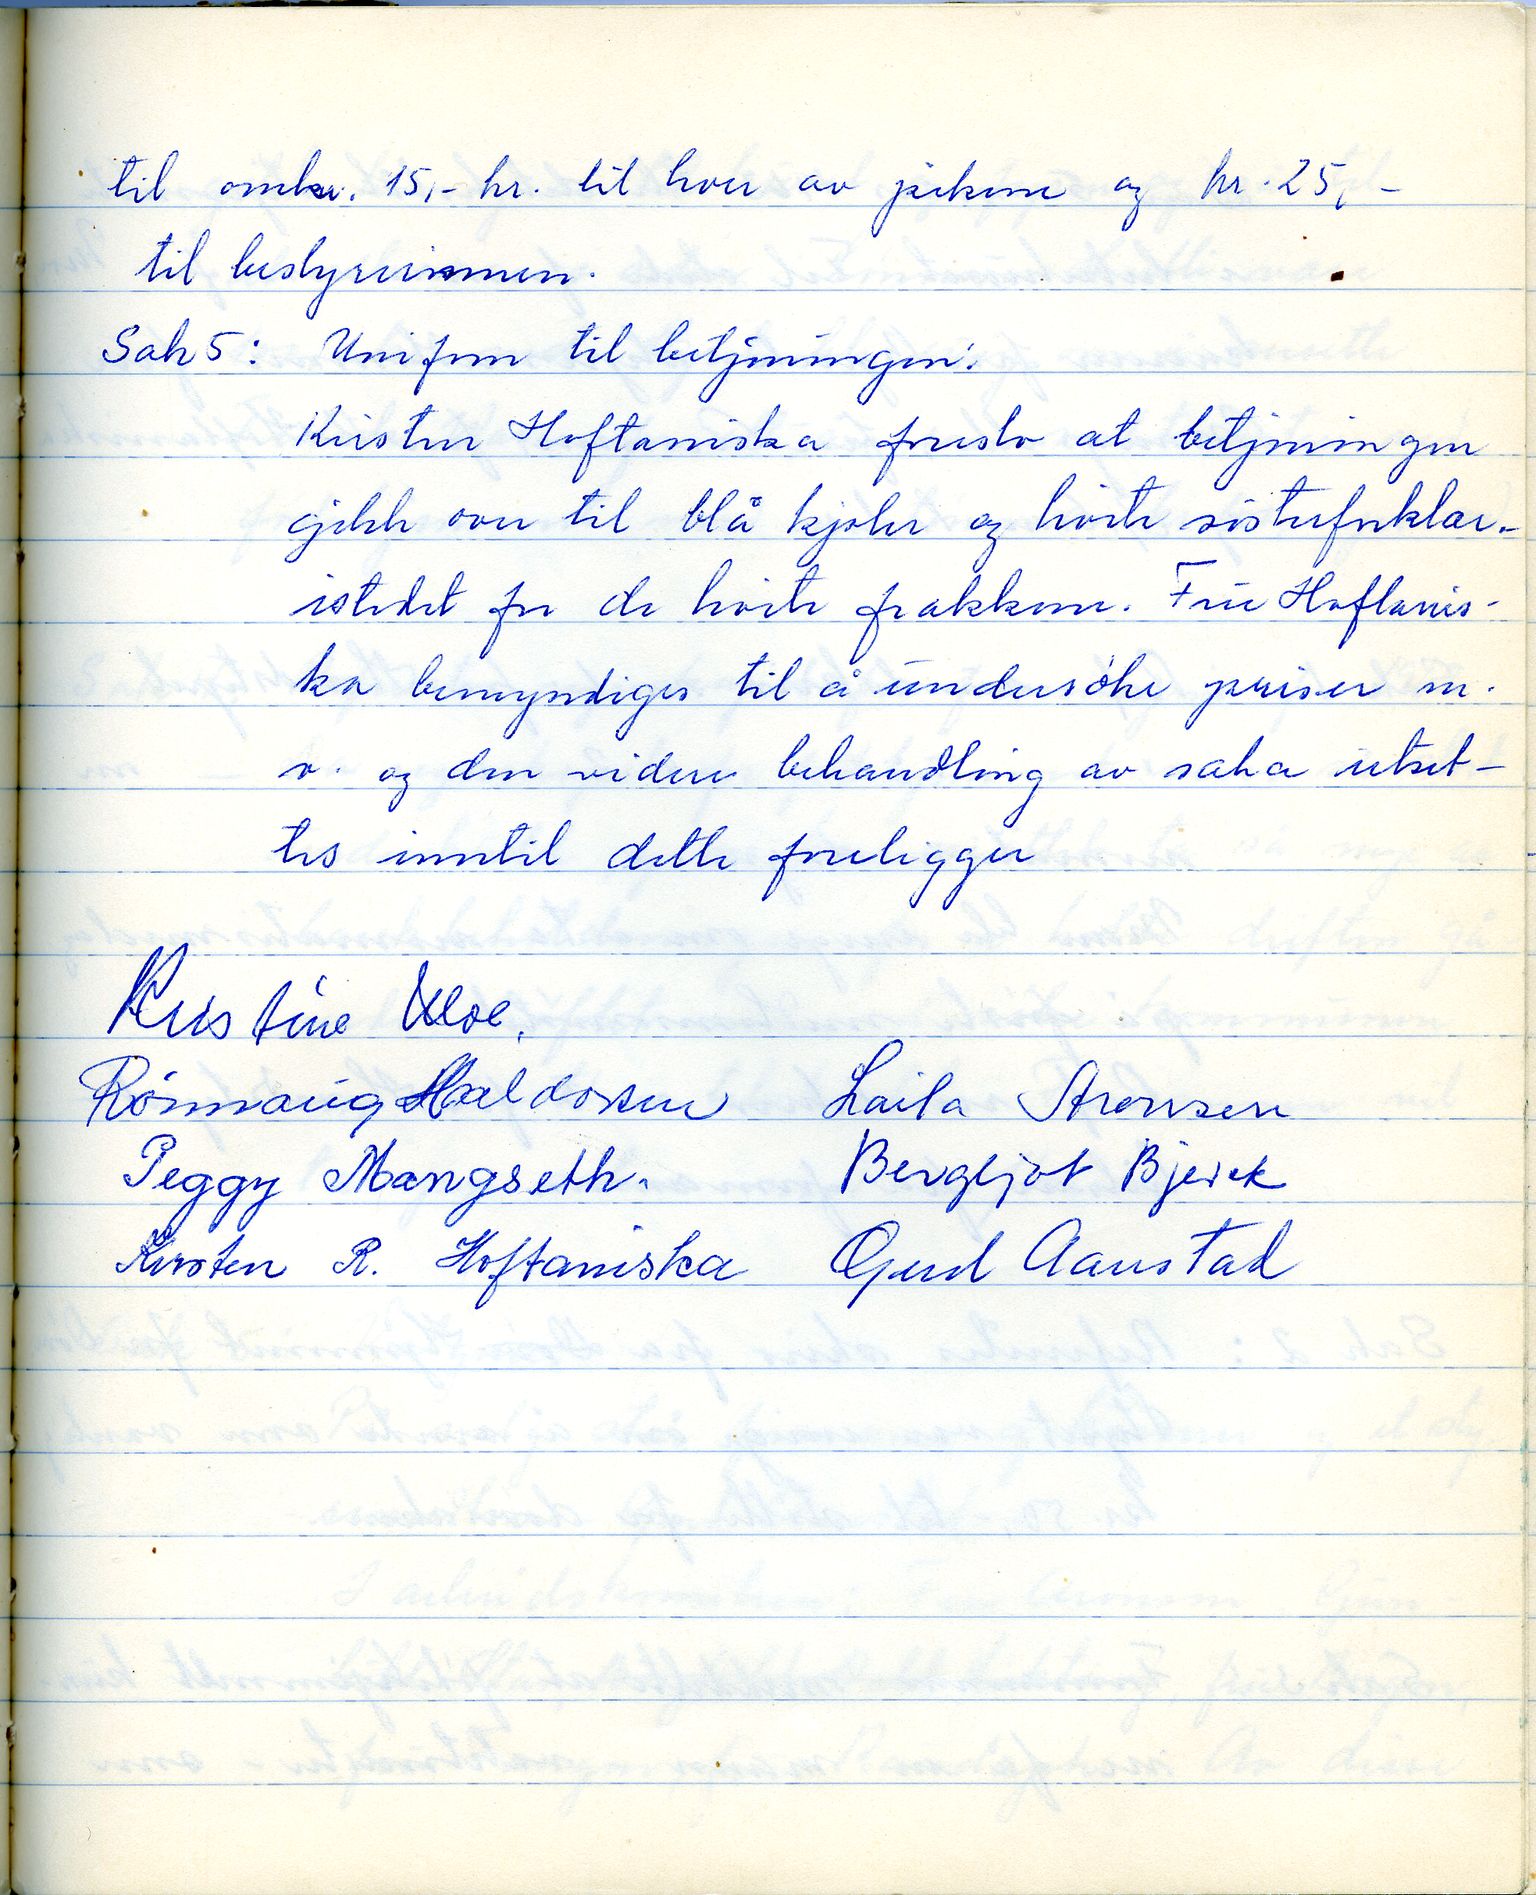 til omkr. 15,- kr. til hver av pikene og kr. 25,-
til bestyrerinnen.
Sak 5: Uniform til betjeningen:
Kirsten Hoftaniska foreslo at betjeningen
gikk over til blå kjoler og hvite søsterforklær-
istedet for de hvite frakkene. Frue Hoftanis-
ka bemyndiges til å undersøke priser m.
v. og den videre behandling av saka utset-
tes inntil dette foreligger
Kristine Moe.
Rønnaug Haldorsen Laila Arensen
Peggy Mangseth. Bergljot Bjerck
Kirsten R. Hoftaniska Gerd Aanstad